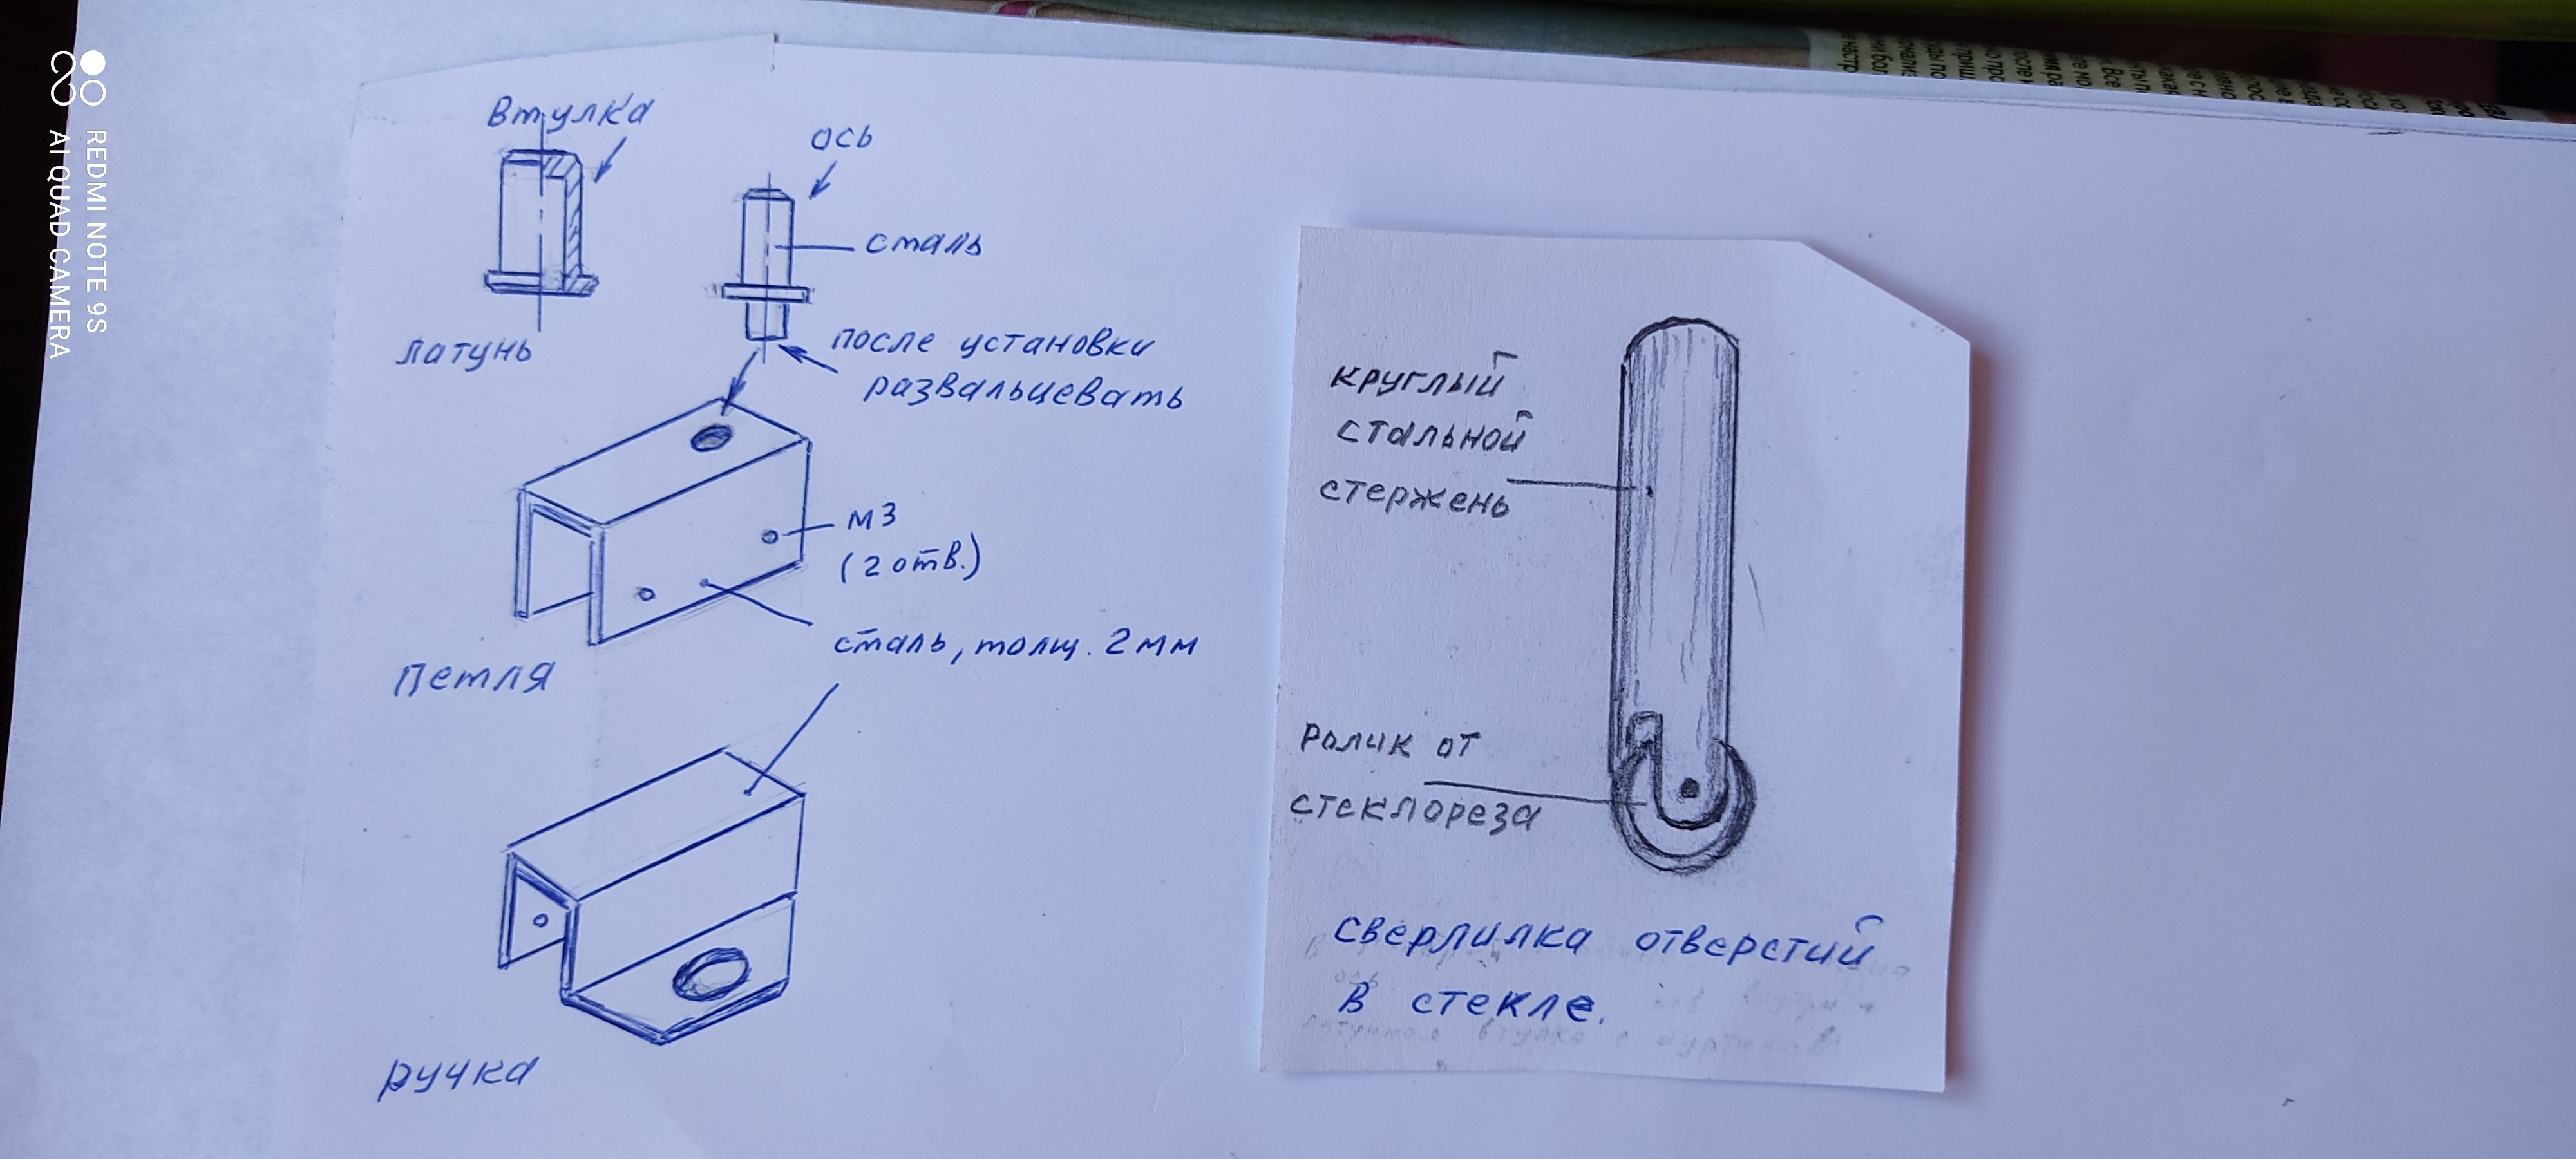 Втулка
ось
сталь
латунь
после установки
развальцевать
М3
(2 отв.)
сталь, толщ. 2 мм
Петля
ручка
круглый
стальной
стержень
Ролик от
стеклореза
сверлилка отверстий
в стекле.
REDMI NOTE 9S
AI QUAD CAMERA